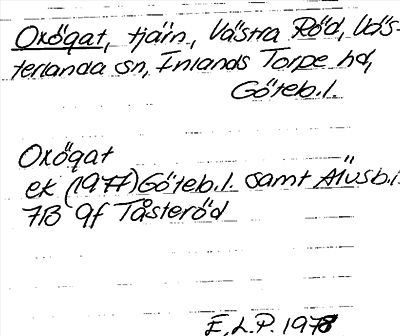 Oxögat, tjärn, Västra Röd, Väs-
terlanda sn, Inlands Torpe hd,
Göteb.l.
Oxögat
ek (1977) Göteb.l. samt Älvsb.l.
7B 9f Tåsteröd
E.L.P. 1978